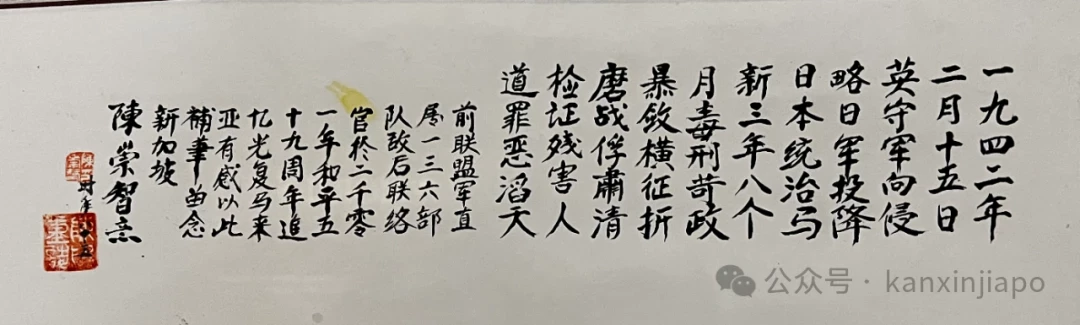 一九四二年
二月十五日
英守军向侵
略日军投降
日本统治马
新三年八个
月毒刑苛政
暴敛横征折
磨战俘肅清
检证残害人
道罪恶滔天
前联盟军直
属一三六部
队敌后联络
官於二千零
一年和平五
十九周年追
忆光复马来
亚有感以此
補筆留念
新加坡
陳崇智
时年
公众号 · kanxinjiapo